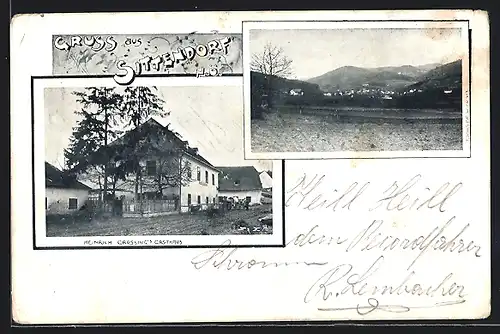 GRUSS AUS
SITTENDORF
N.Ö.
HEINRICH GROSSING'S GASTHAUS
Heill Heill
dem Recordfahrer
R. Lembacher